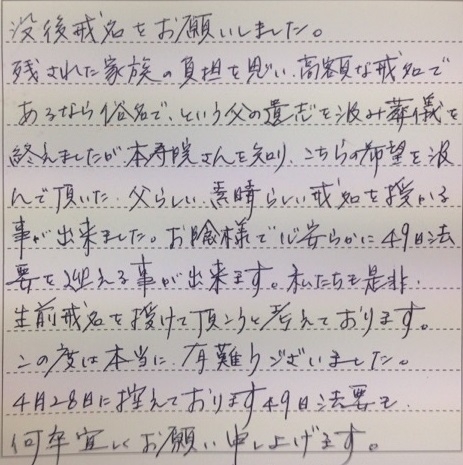 没後戒名をお願いしました。
残された家族の負担を思い、高額な戒名で
あるなら俗名で、という父の遺志を汲み葬儀を
終えましたが本寿院さんを知り、こちらの希望を汲
んで頂いた、父らしい、素晴らしい戒名を授かる
事が出来ました。お陰様で心安らかに49日法
要を迎える事が出来ます。私たちも是非、
生前戒名を授けて頂こうと考えております。
この度は本当に、有難うございました。
4月28日に控えております49日法要も
何卒宜しくお願い申し上げます。